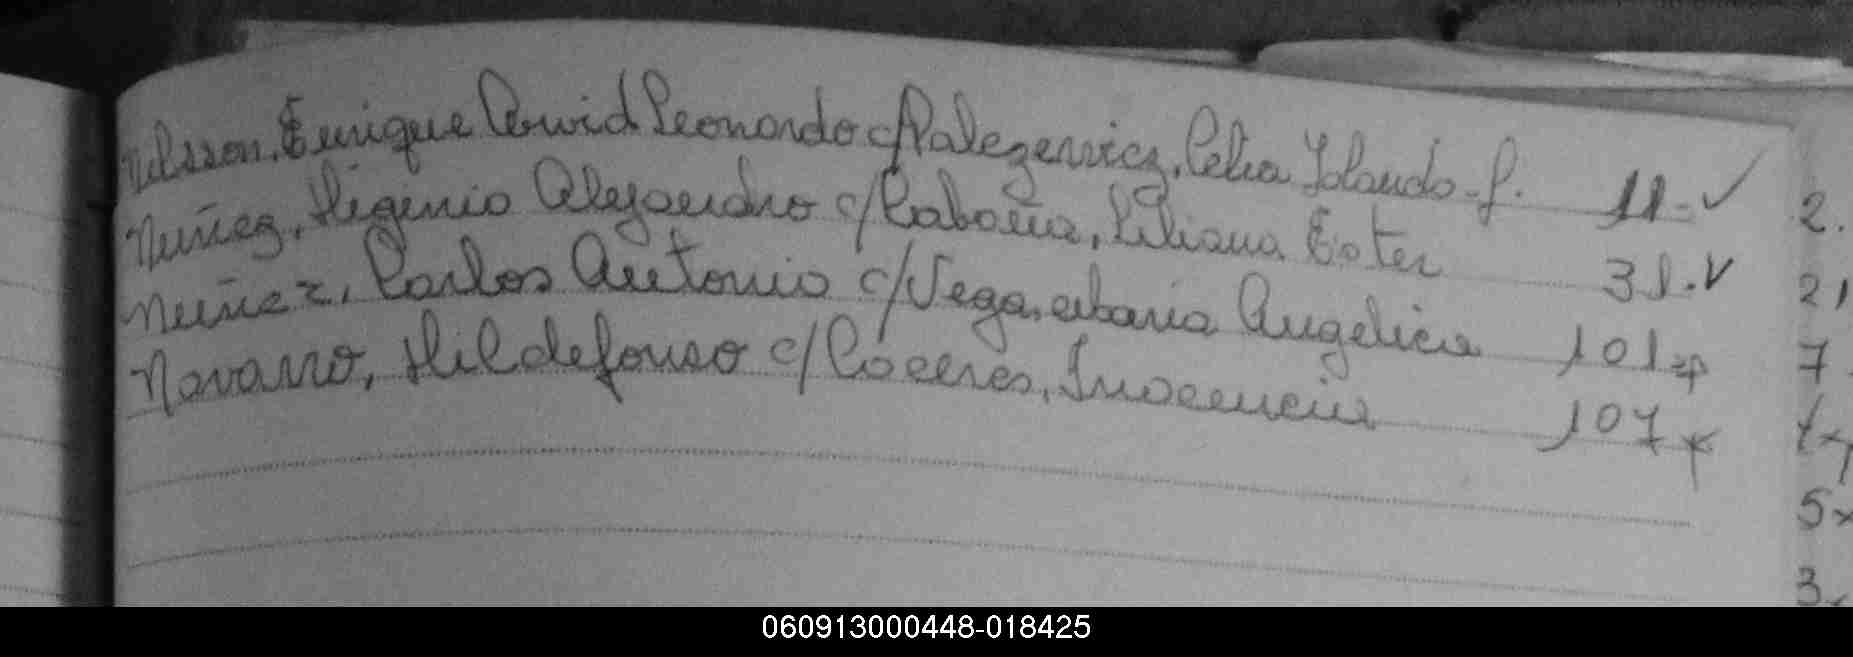 Nilsson, Enrique Cowid Leonardo c/ Palezewicz, Celia Yolanda - f. 11 - ✓
Nuñez, Higinio Alejandro c/ Cabaña, Liliana Ester 31. ✓
Nuñez, Carlos Antonio c/ Vega, Maria Angelica 101
Navarro, Hildefonso c/ Caceres, Inocencia 107
2.
21
7
5x
3
060913000448-018425